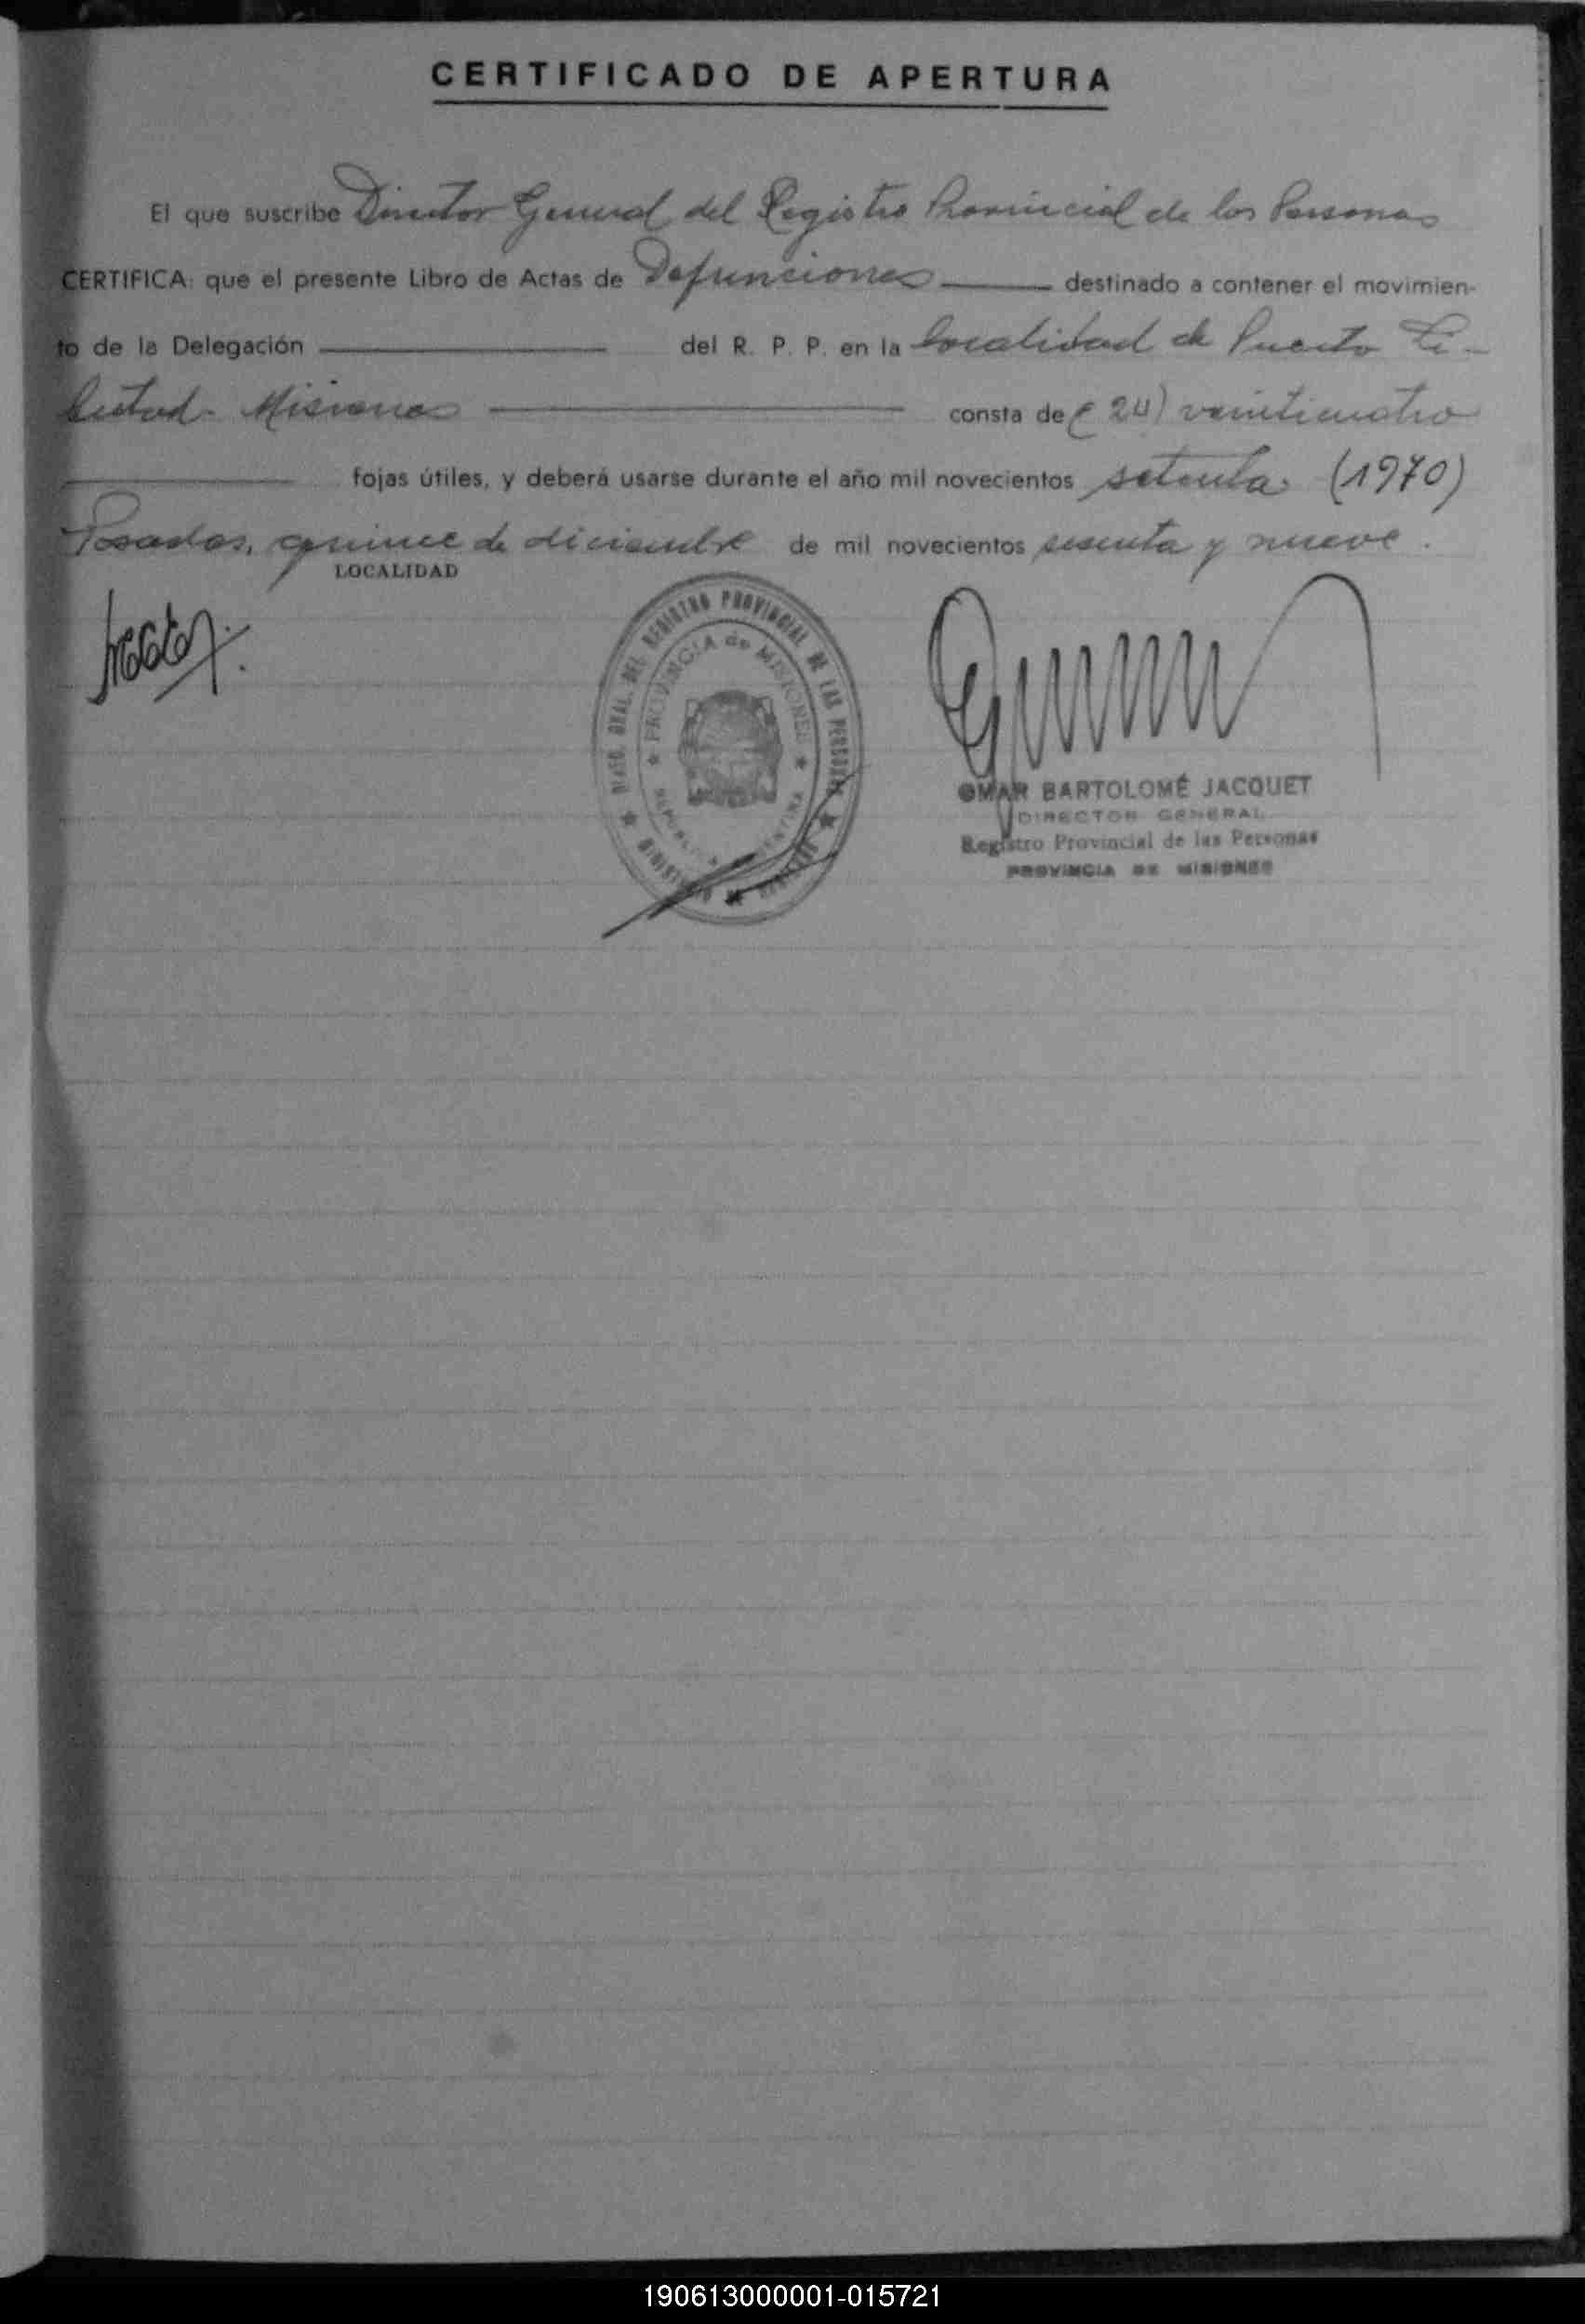 CERTIFICADO DE APERTURA
El que suscribe Director General del Registro Provincial de las Personas
CERTIFICA: que el presente Libro de Actas de Defunciones destinado a contener el movimien-
to de la Delegación del R. P. P. en la localidad de Puerto Li-
bertad - Misiones consta de (24) veinticuatro
fojas útiles, y deberá usarse durante el año mil novecientos setenta (1970)
Posadas, quince de diciembre de mil novecientos sesenta y nueve.
LOCALIDAD
GRAL. DEL REGISTRO PROVINCIAL DE LAS PERSONAS
PROVINCIA de MISIONES
OMAR BARTOLOMÉ JACQUET
DIRECTOR GENERAL
Registro Provincial de las Personas
PROVINCIA DE MISIONES
190613000001-015721